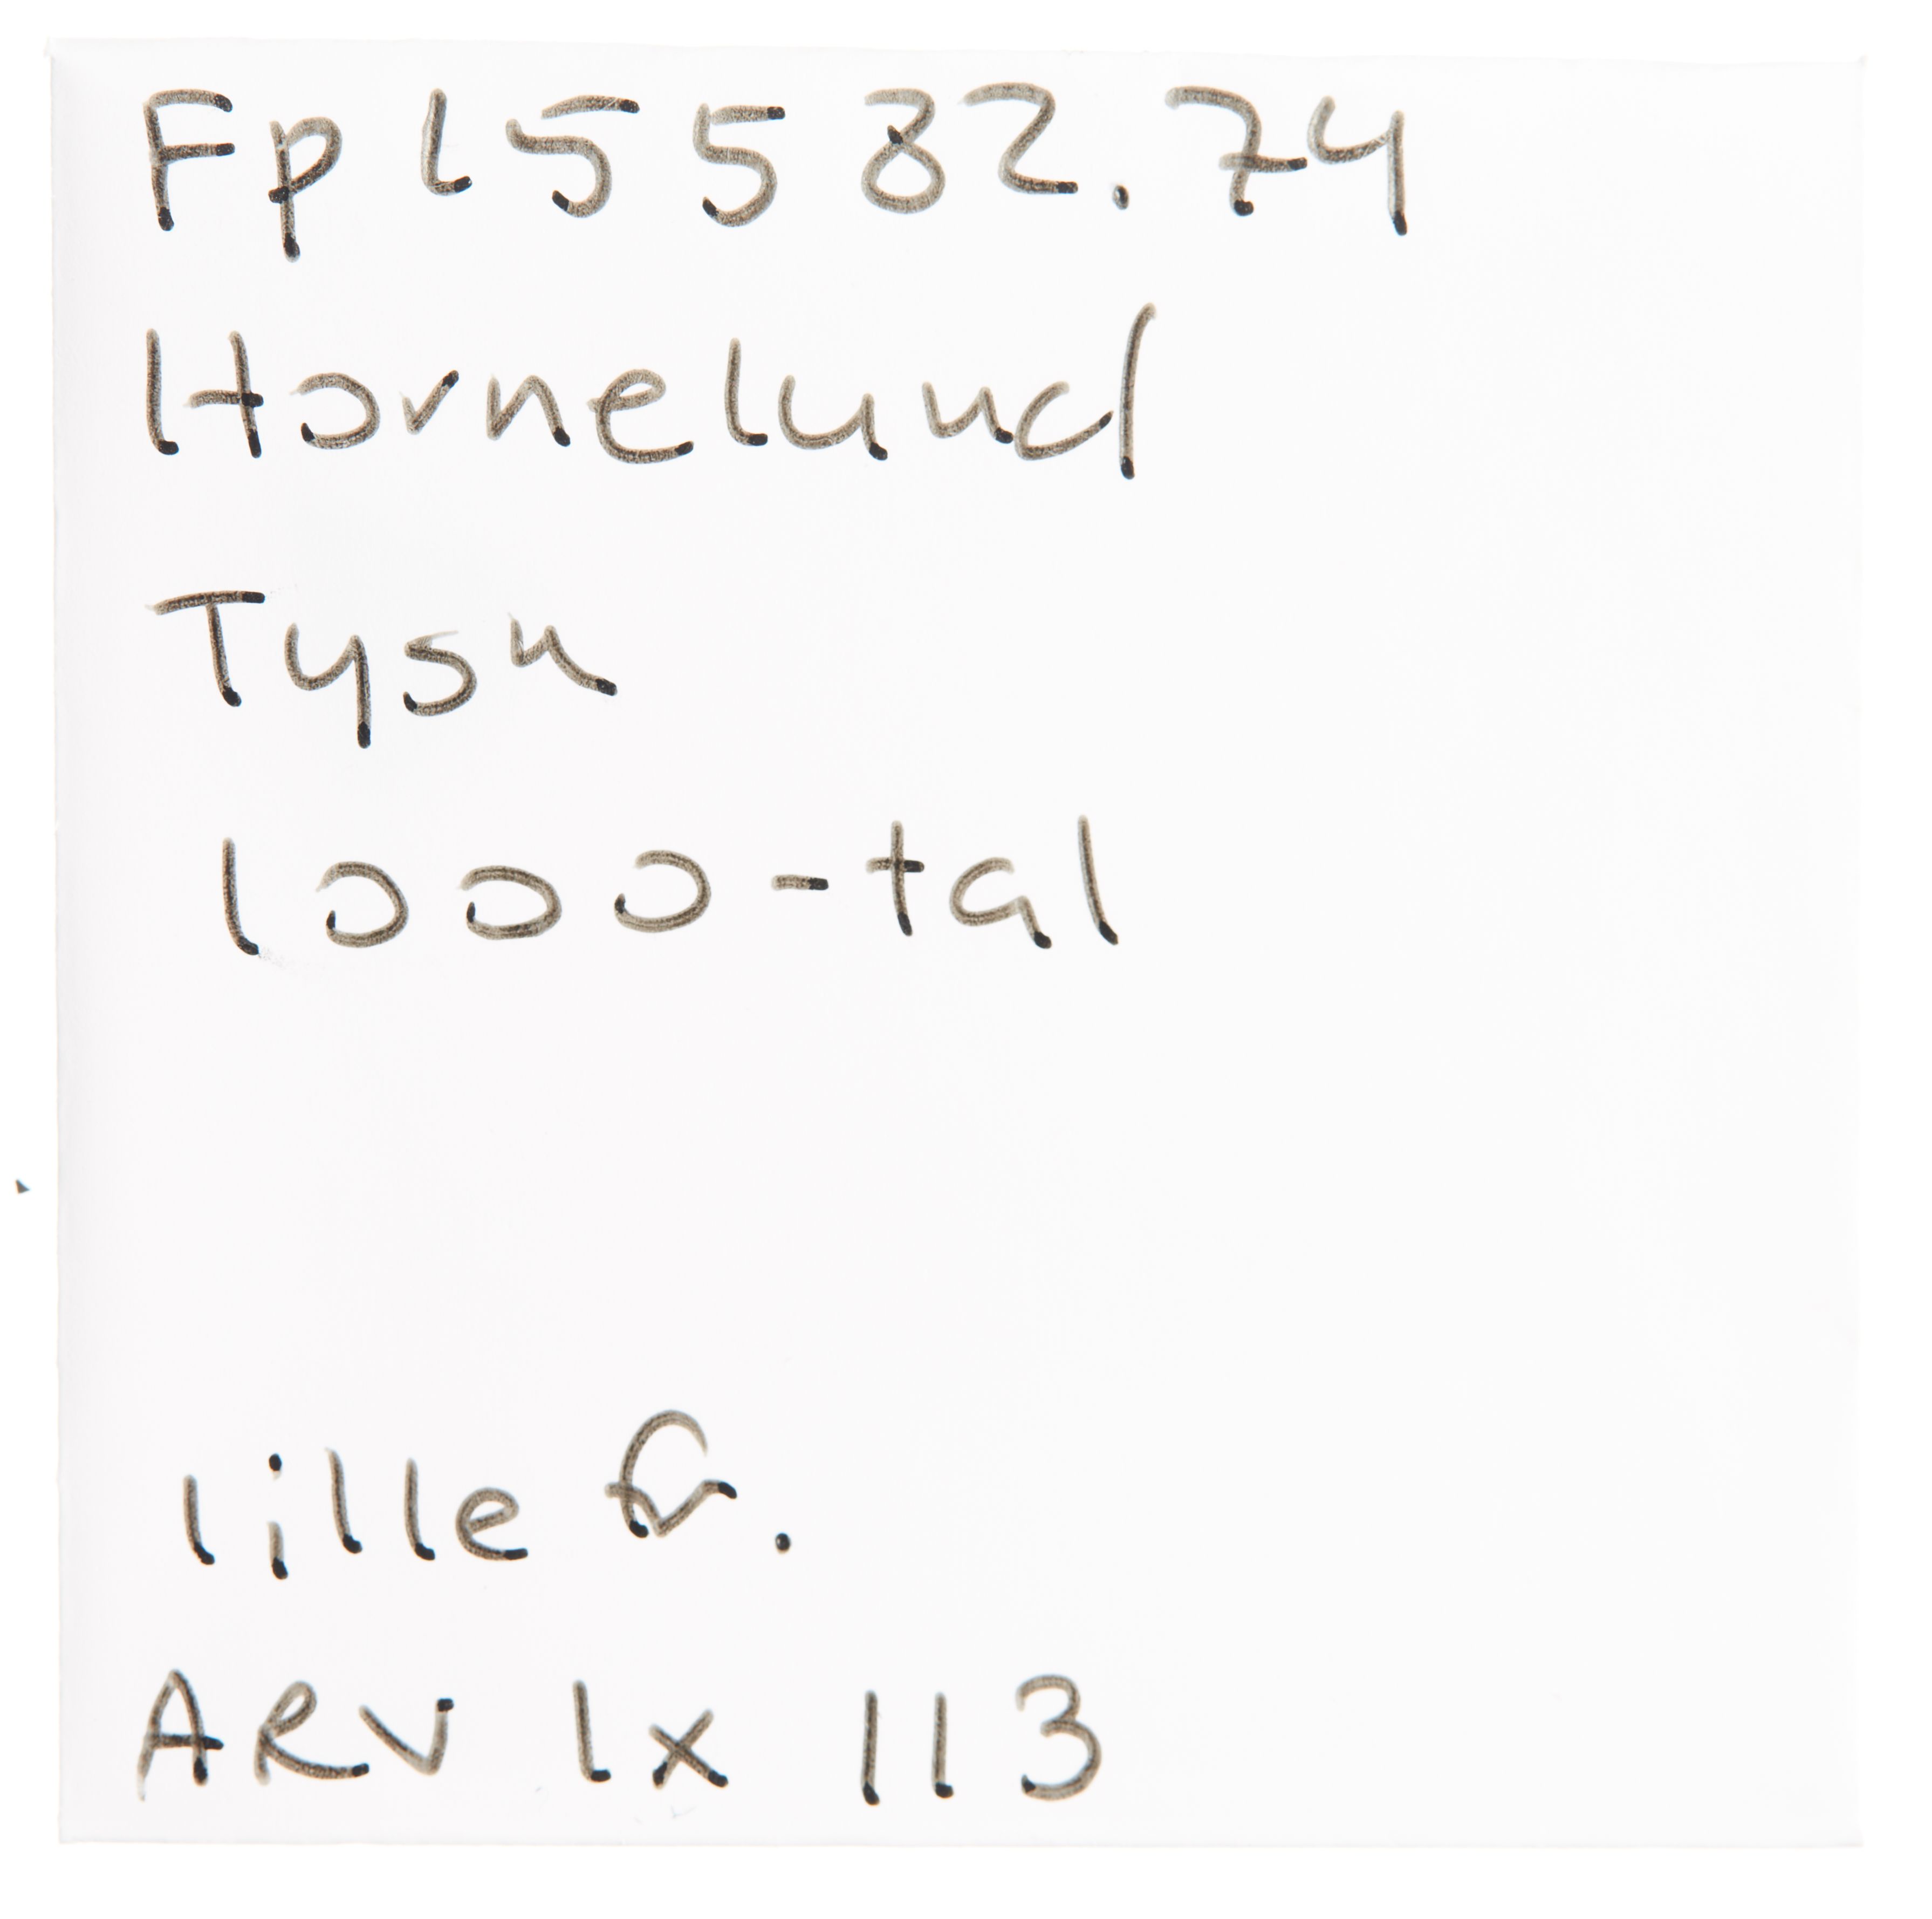 Fp 15582.74
Hornelund
Tysk
1000-tal
lille fr.
ARV 1x 113